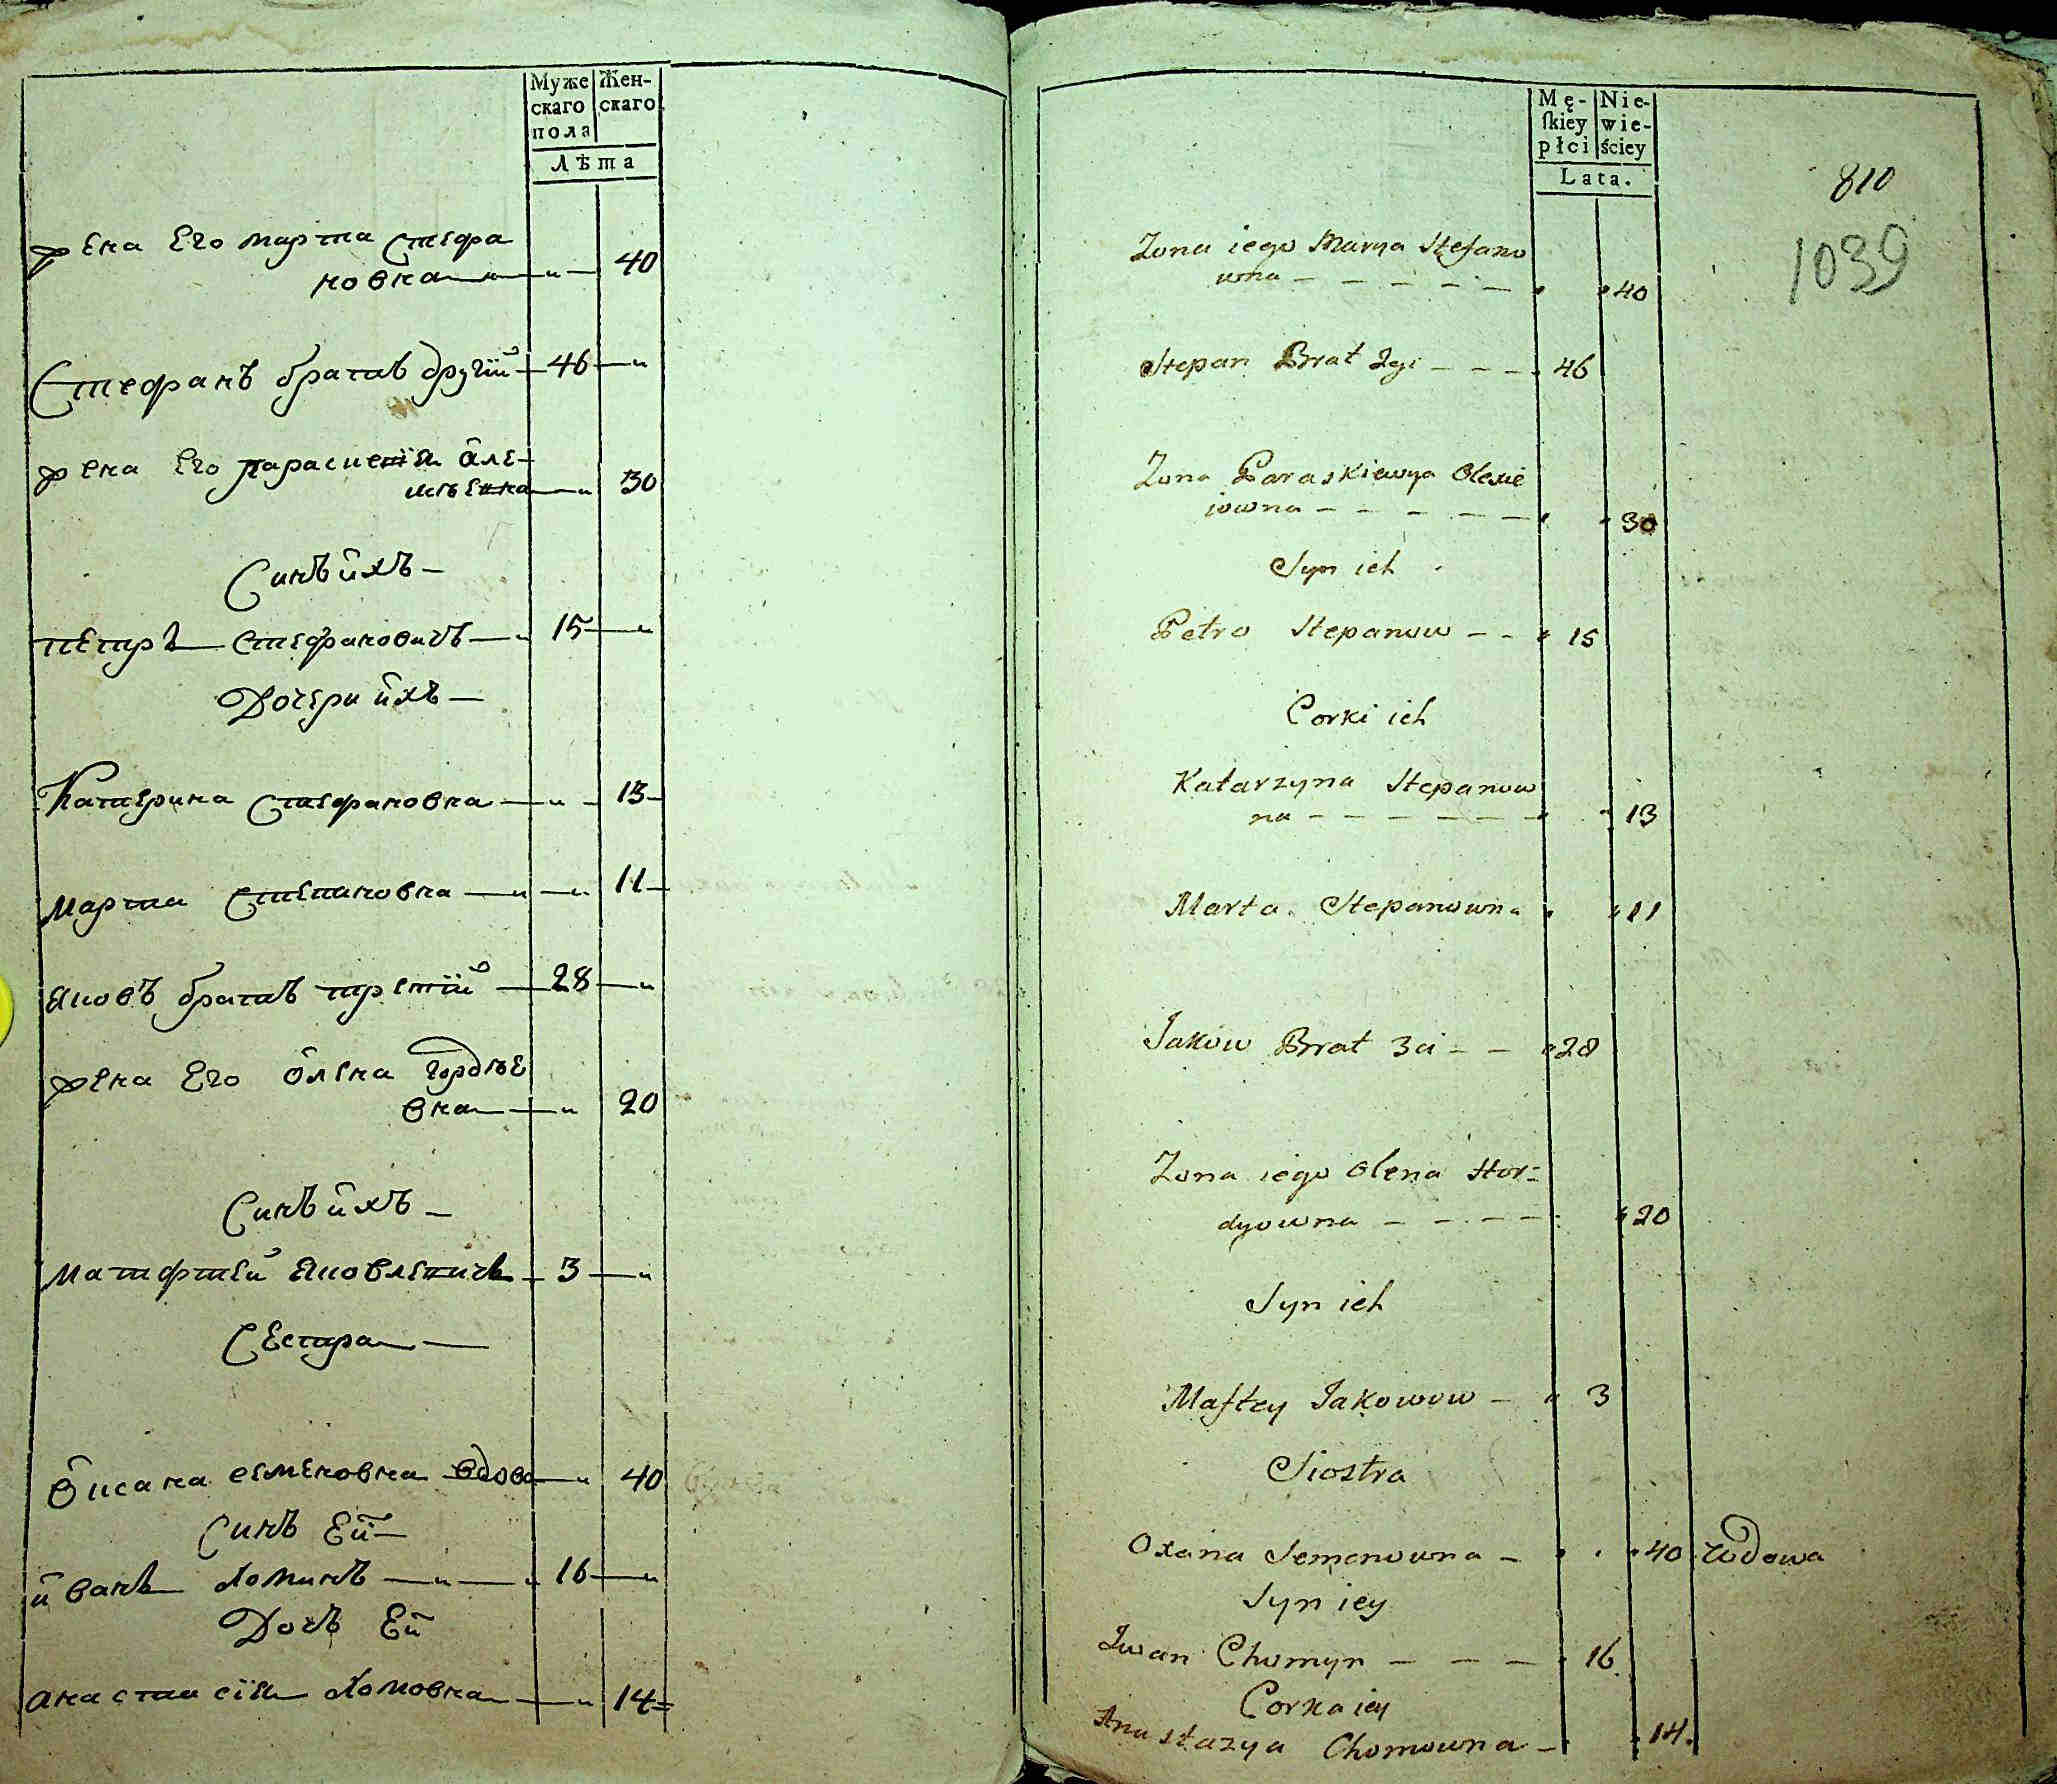 Муже Жен-
скаго скаго
пола
Лѣта
жена Его марта Стефа
новна — „ — 40
Стефанъ братъ другій — 46 — „
жена Его параскевія Але-
ксѣевна — „ 30
Синъ ихъ —
петръ Стефановичъ — „ 15 — „
Дочери ихъ —
Катерина Стефановна — „ — 13 —
Марта Степановна — „ — „ 11 —
Яковъ братъ третій — 28 — „
жена Его Олена Гордѣе
вна — „ 20
Синъ ихъ —
Матфтей Яковлевичъ — 3 — „
Сестра —
Оксана семеновна вдова — „ 40
Синъ Ей —
иванъ Хоминъ — „ — „ 16 — „
Дочъ Ей
анастасія Хомовна — „ 14 =
Mę- Nie-
ſkiey wie-
płci ściey
Lata.
810
1039
Zona iego Marya Stefano
wna - - - - - „ „ 40
Stepan Brat 2gi - - - - 46
Zona Paraskiewya Olexie
iowna - - - - - „ „ 30
Syn ich
Petro Stepanow - - „ 15
Corki ich
Katarzyna Stepanow
na - - - - - - „ 13
Marta Stepanowna „ „ 11
Jakow Brat 3ci - - „ 28
Zona iego Olena Hor=
dyowna - - - - - „ 20
Syn ich
Maftey Jakowow - „ 3
Siostra
Oxana Semenowna - „ „ 40 wdowa
Syn iey
Iwan Chomyn - - - „ 16
Corka iey
Anastazya Chomowna - „ 14.